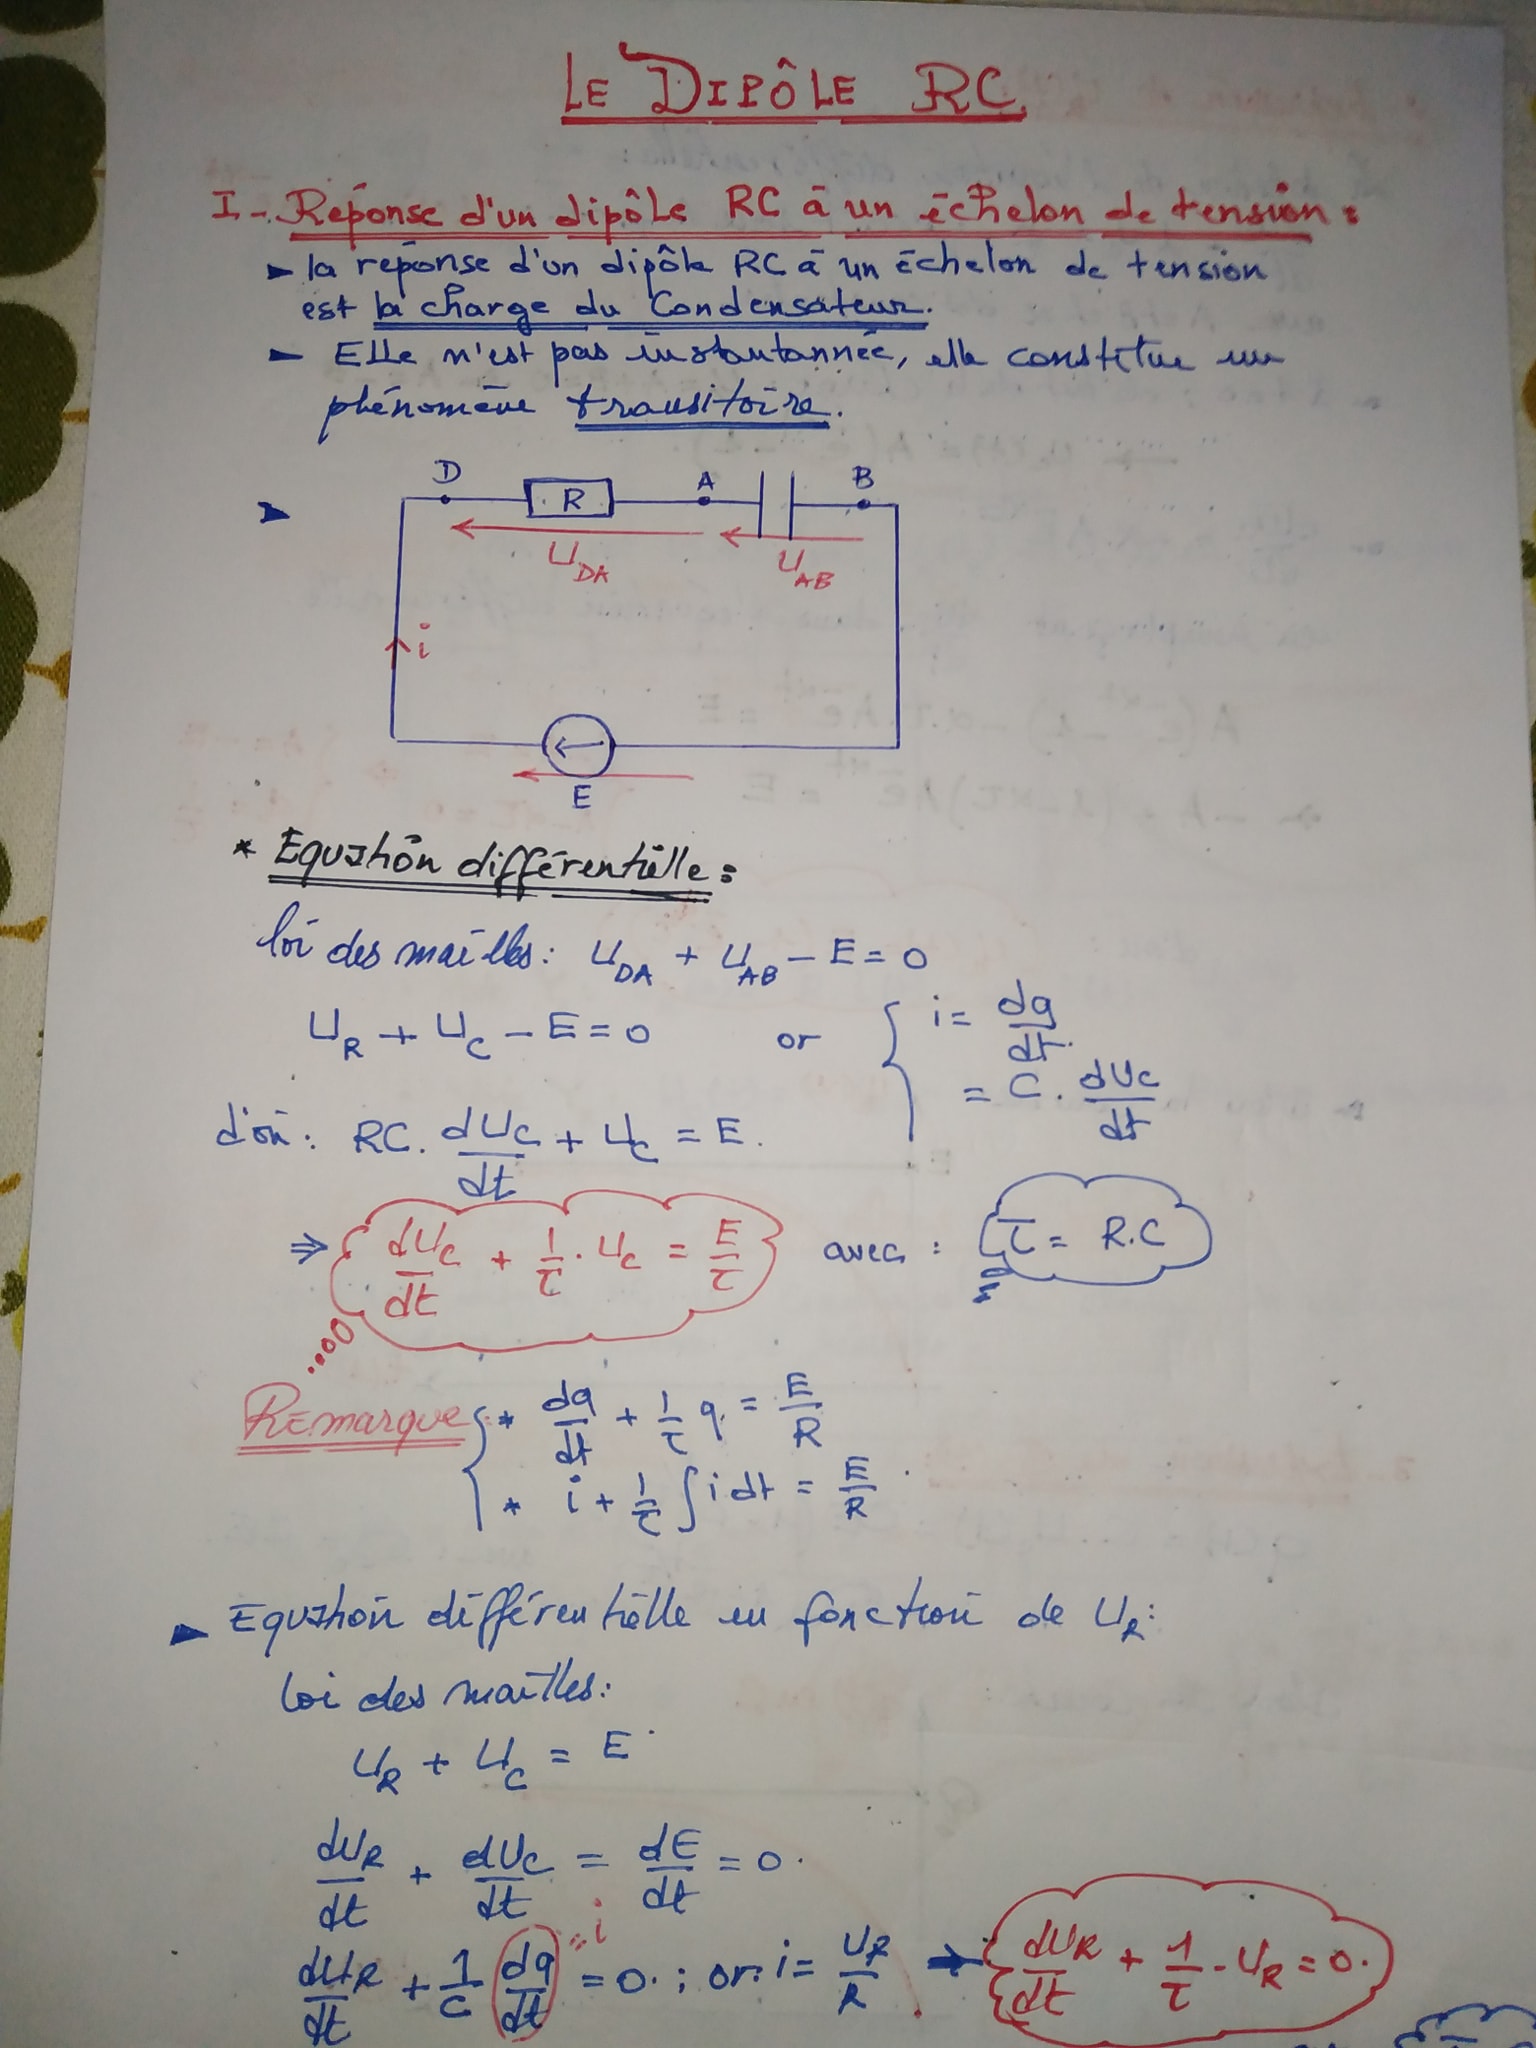 LE DIPÔLE RC
I - Réponse d'un dipôle RC à un échelon de tension :
la réponse d'un dipôle RC à un échelon de tension
est la charge du Condensateur.
Elle n'est pas instantannée, elle constitue un
phénomène transitoire.
D R A B
U_DA U_AB
i
E
* Equation différentielle :
loi des mailles : U_DA + U_AB - E = 0
U_R + U_C - E = 0 or { i = dq/dt
= C . dUc/dt
d'où : RC. dUc/dt + U_C = E.
⇒ dUc/dt + 1/τ . U_C = E/τ avec : τ = R.C
Remarque { * dq/dt + 1/τ q = E/R
* i + 1/τ ∫ i dt = E/R
Equation différentielle en fonction de U_R :
loi des mailles :
U_R + U_C = E
dU_R/dt + dU_C/dt = dE/dt = 0.
dU_R/dt + 1/C dq/dt = 0 . ; or i = U_R/R → dU_R/dt + 1/τ . U_R = 0.
= i